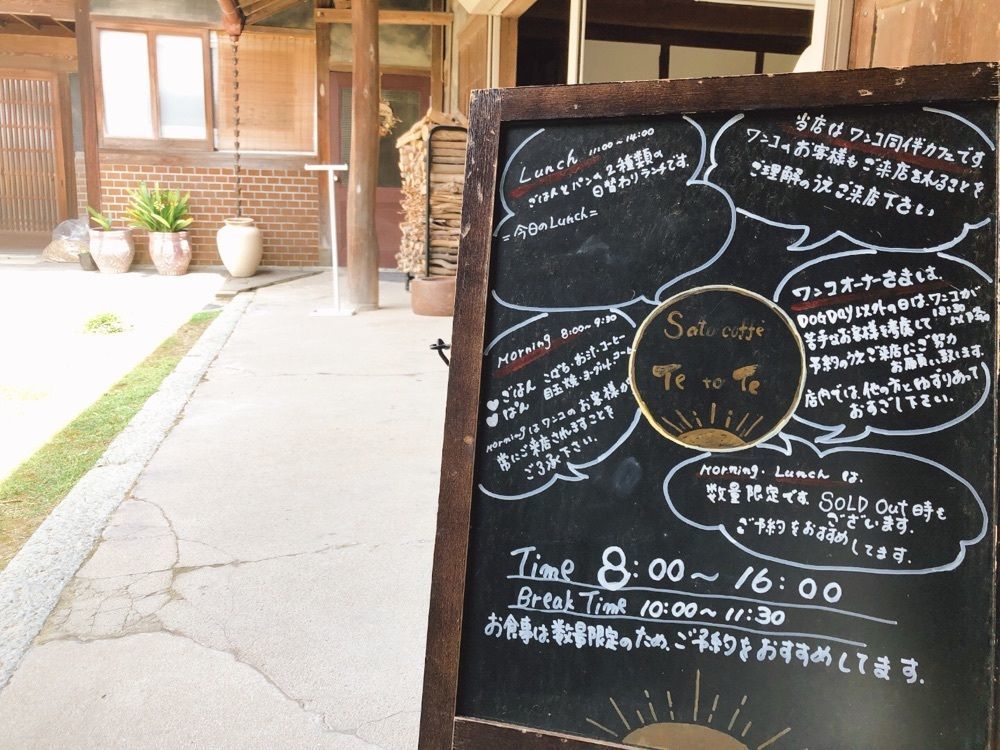 Lunch 11:00～14:00
ごはんとパンの2種類の
日替わりランチです。
=今日のLunch=
当店はワンコ同伴カフェです
ワンコのお客様もご来店されることを
ご理解のうえご来店下さい
Morning 8:00～9:30
♥ごはん こばち・お汁・コーヒー
♥ぱん 目玉焼・ヨーグルト・コーヒー
Morningはワンコのお客様が
常にご来店されますことを
ご了承下さい。
Sato coffe
Te to Te
ワンコオーナーさまは、
DOGDAY以外の日は、ワンコが
苦手なお客様を考慮して 13:30
予約のうえご来店にご努力
お願い致します。
店内では、他の方とゆずりあって
おすごし下さい。
Morning・Lunchは、
数量限定です。SOLD Out時も
ございます。
ご予約をおすすめ
してます。
Time 8:00～16:00
Break Time 10:00～11:30
お食事は、数量限定のため、ご予約をおすすめしてます。